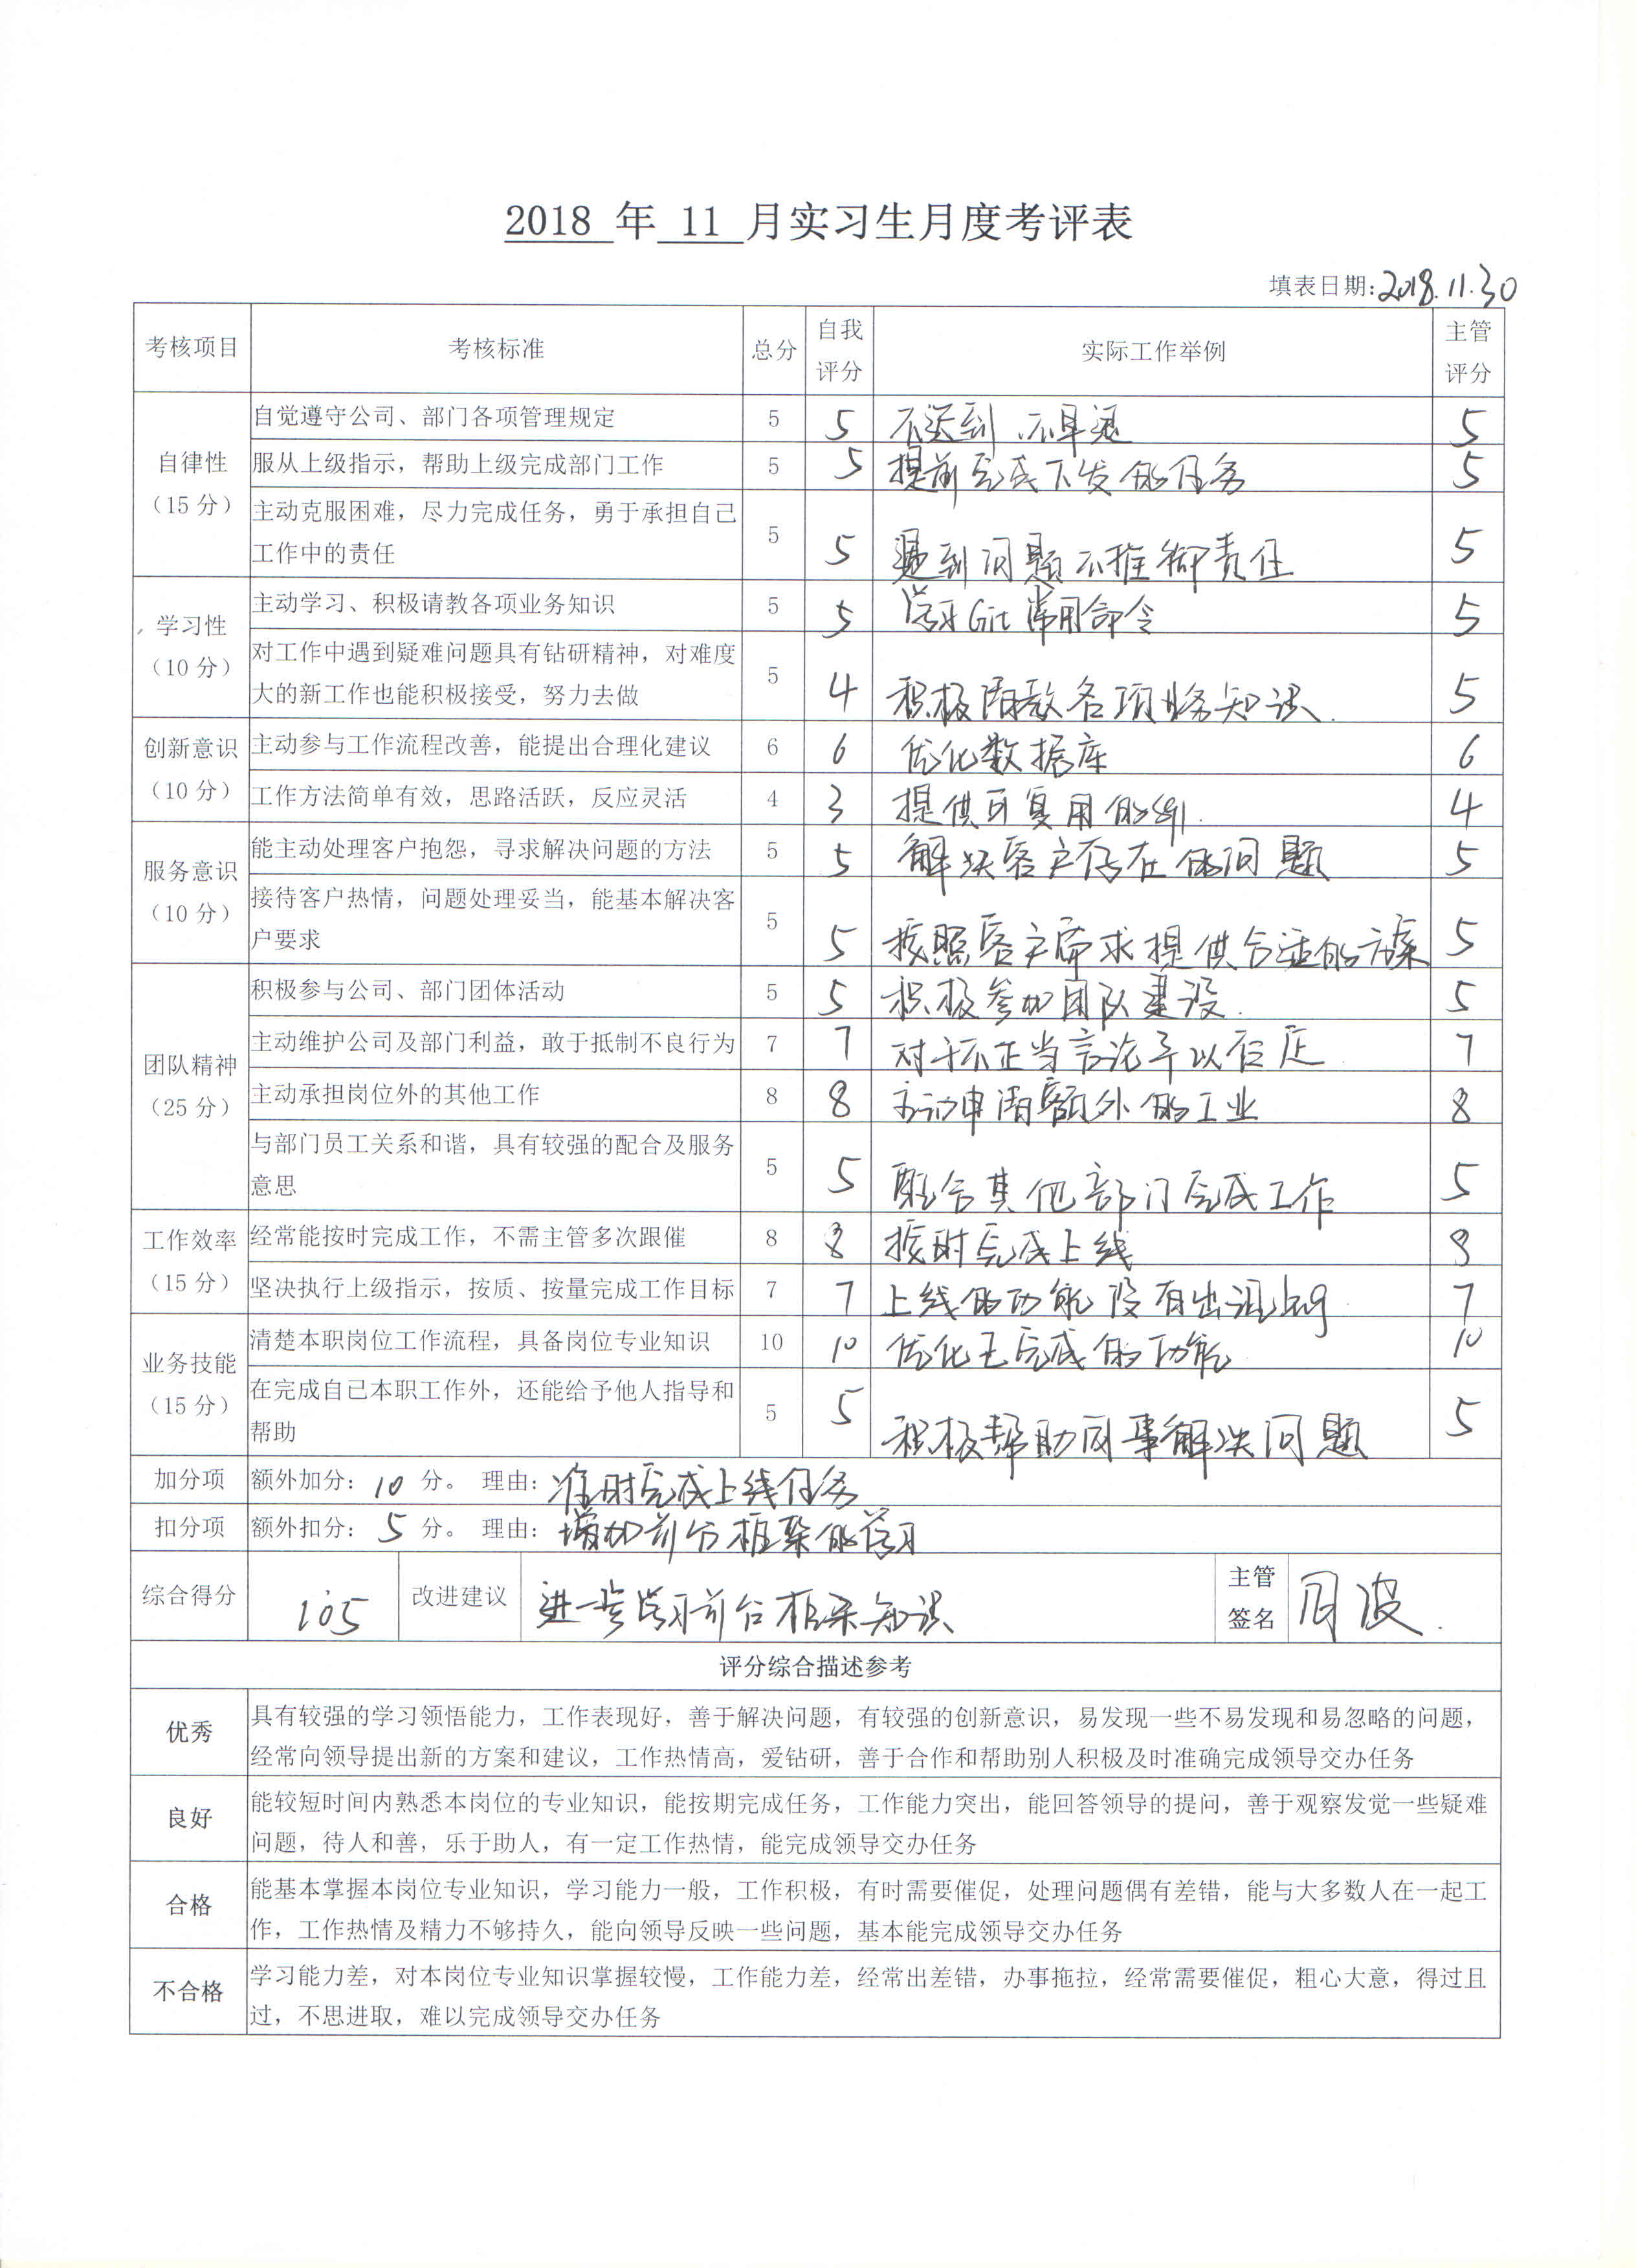 2018 年 11 月实习生月度考评表
填表日期:2018.11.30
考核项目 考核标准 总分 自我评分 实际工作举例 主管评分
自律性（15分）
自觉遵守公司、部门各项管理规定 5 5 不迟到、不早退 5
服从上级指示，帮助上级完成部门工作 5 5 提前完成下发的任务 5
主动克服困难，尽力完成任务，勇于承担自己
工作中的责任 5 5 遇到问题不推卸责任 5
学习性（10分）
主动学习、积极请教各项业务知识 5 5 学习Git常用命令 5
对工作中遇到疑难问题具有钻研精神，对难度
大的新工作也能积极接受，努力去做 5 4 积极请教各项业务知识. 5
创新意识（10分）
主动参与工作流程改善，能提出合理化建议 6 6 优化数据库 6
工作方法简单有效，思路活跃，反应灵活 4 3 提供可复用的 4
服务意识（10分）
能主动处理客户抱怨，寻求解决问题的方法 5 5 解决客户存在的问题 5
接待客户热情，问题处理妥当，能基本解决客
户要求 5 5 按照客户需求提供合适的方案 5
团队精神（25分）
积极参与公司、部门团体活动 5 5 积极参加团队建设. 5
主动维护公司及部门利益，敢于抵制不良行为 7 7 对于不正当言论予以否定 7
主动承担岗位外的其他工作 8 8 主动申请额外的工业 8
与部门员工关系和谐，具有较强的配合及服务
意思 5 5 配合其他部门完成工作 5
工作效率（15分）
经常能按时完成工作，不需主管多次跟催 8 8 按时完成上线 8
坚决执行上级指示，按质、按量完成工作目标 7 7 上线的功能没有出现bug 7
业务技能（15分）
清楚本职岗位工作流程，具备岗位专业知识 10 10 优化已完成的功能 10
在完成自己本职工作外，还能给予他人指导和
帮助 5 5 积极帮助同事解决问题 5
加分项 额外加分：10 分。 理由：准时完成上线任务
扣分项 额外扣分：5 分。 理由：增加前台框架的学习
综合得分 105 改进建议 进一步学习前台框架知识 主管签名 周波.
评分综合描述参考
优秀
具有较强的学习领悟能力，工作表现好，善于解决问题，有较强的创新意识，易发现一些不易发现和易忽略的问题，
经常向领导提出新的方案和建议，工作热情高，爱钻研，善于合作和帮助别人积极及时准确完成领导交办任务
良好
能较短时间内熟悉本岗位的专业知识，能按期完成任务，工作能力突出，能回答领导的提问，善于观察发觉一些疑难
问题，待人和善，乐于助人，有一定工作热情，能完成领导交办任务
合格
能基本掌握本岗位专业知识，学习能力一般，工作积极，有时需要催促，处理问题偶有差错，能与大多数人在一起工
作，工作热情及精力不够持久，能向领导反映一些问题，基本能完成领导交办任务
不合格
学习能力差，对本岗位专业知识掌握较慢，工作能力差，经常出差错，办事拖拉，经常需要催促，粗心大意，得过且
过，不思进取，难以完成领导交办任务